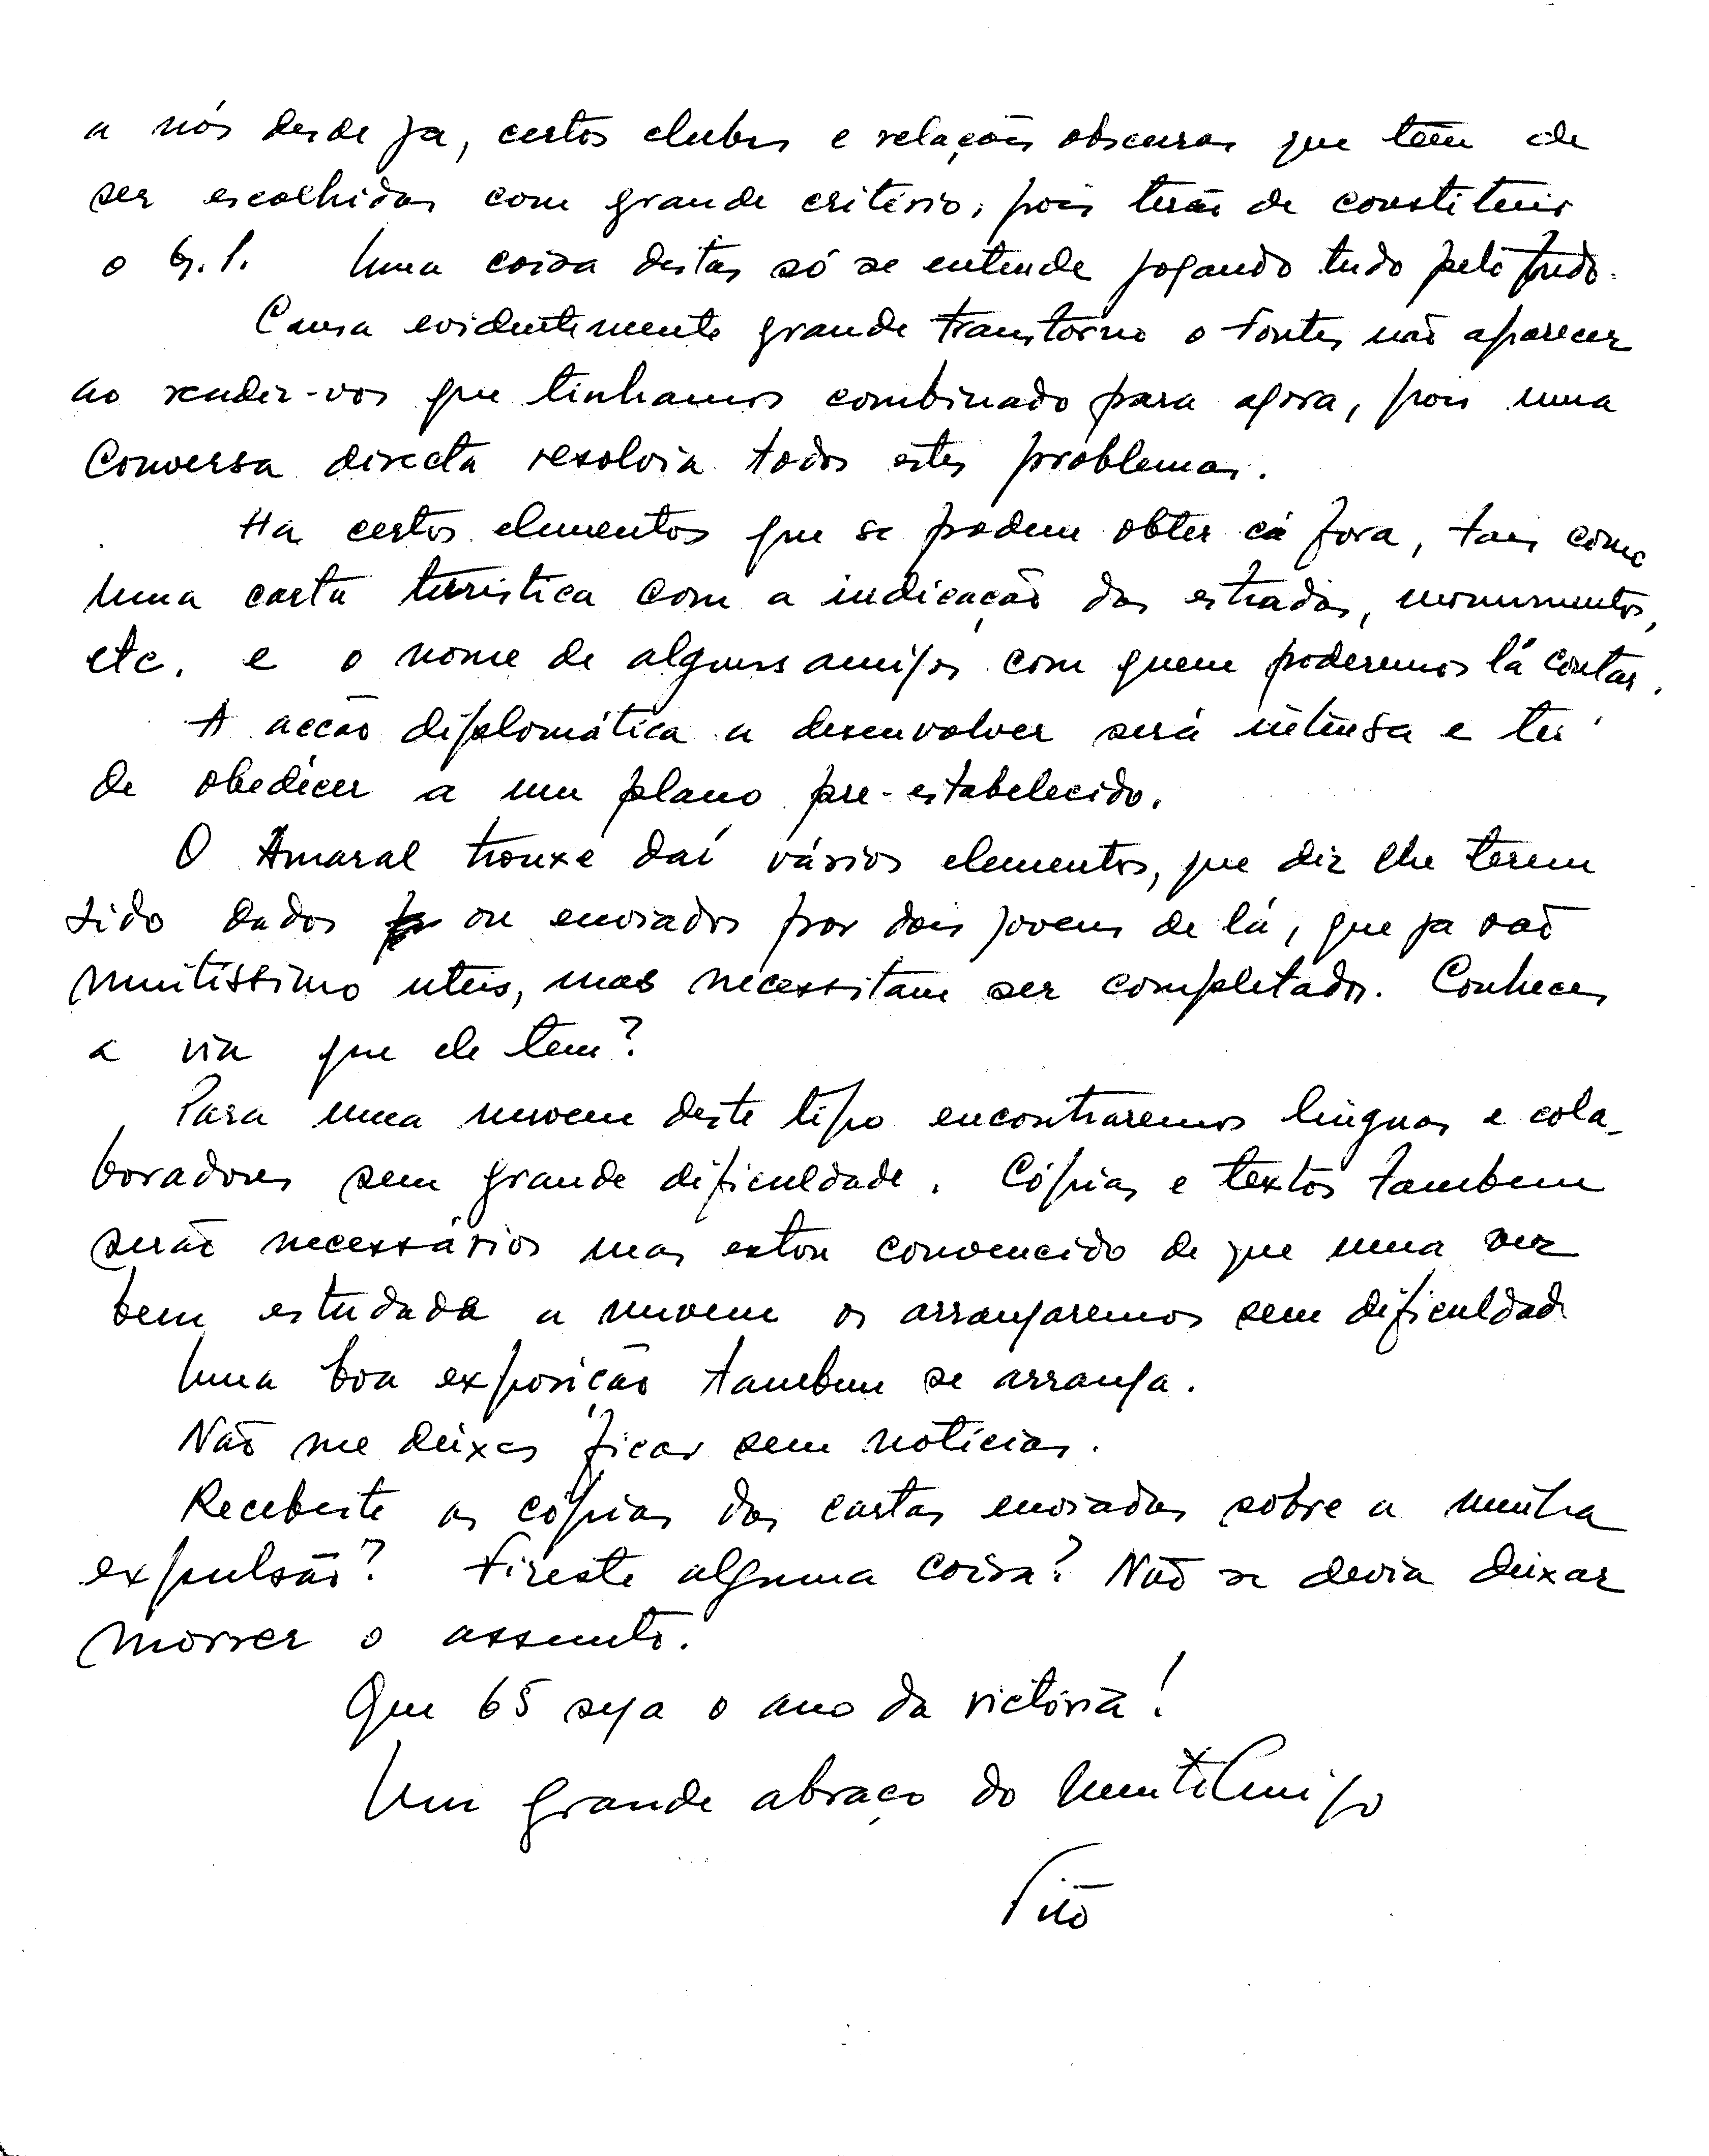 a nós desde ja, certos clubes e relações obscuras que teem de
ser escolhidas com grande critério, pois terão de constituir
o G. P. Uma coisa destas só se entende jogando tudo pelo tudo.
Causa evidentemente grande transtorno o Fontes não aparecer
ao rendez-vos que tinhamos combinado para agora, pois uma
conversa directa resolvia todos estes problemas.
Ha certos elementos que se podem obter cá fora, tais como
uma carta turistica com a indicação das estradas, monumentos,
etc. e o nome de alguns amigos com quem poderemos lá contar.
A acção diplomática a desenvolver será intensa e ter
de obedecer a um plano pre-estabelecido.
O Amaral trouxe daí vários elementos, que diz lhe terem
sido dados ou enviados por dois jovens de lá, que ja são
muitissimo uteis, mas necessitam ser completados. Conheces
a via que ele tem?
Para uma nuvem deste tipo encontraremos linguas e cola-
boradores sem grande dificuldade. Cópias e textos tambem
serão necessários mas estou convencido de que uma vez
bem estudada a nuvem os arranjaremos sem dificuldade
Uma boa exposição tambem se arranja.
Não me deixes ficar sem noticias.
Recebeste as cópias das cartas enviadas sobre a minha
expulsão? Fizeste alguma coisa? Não se devia deixar
morrer o assunto.
Que 65 seja o ano da victória!
Um grande abraço do muito amigo